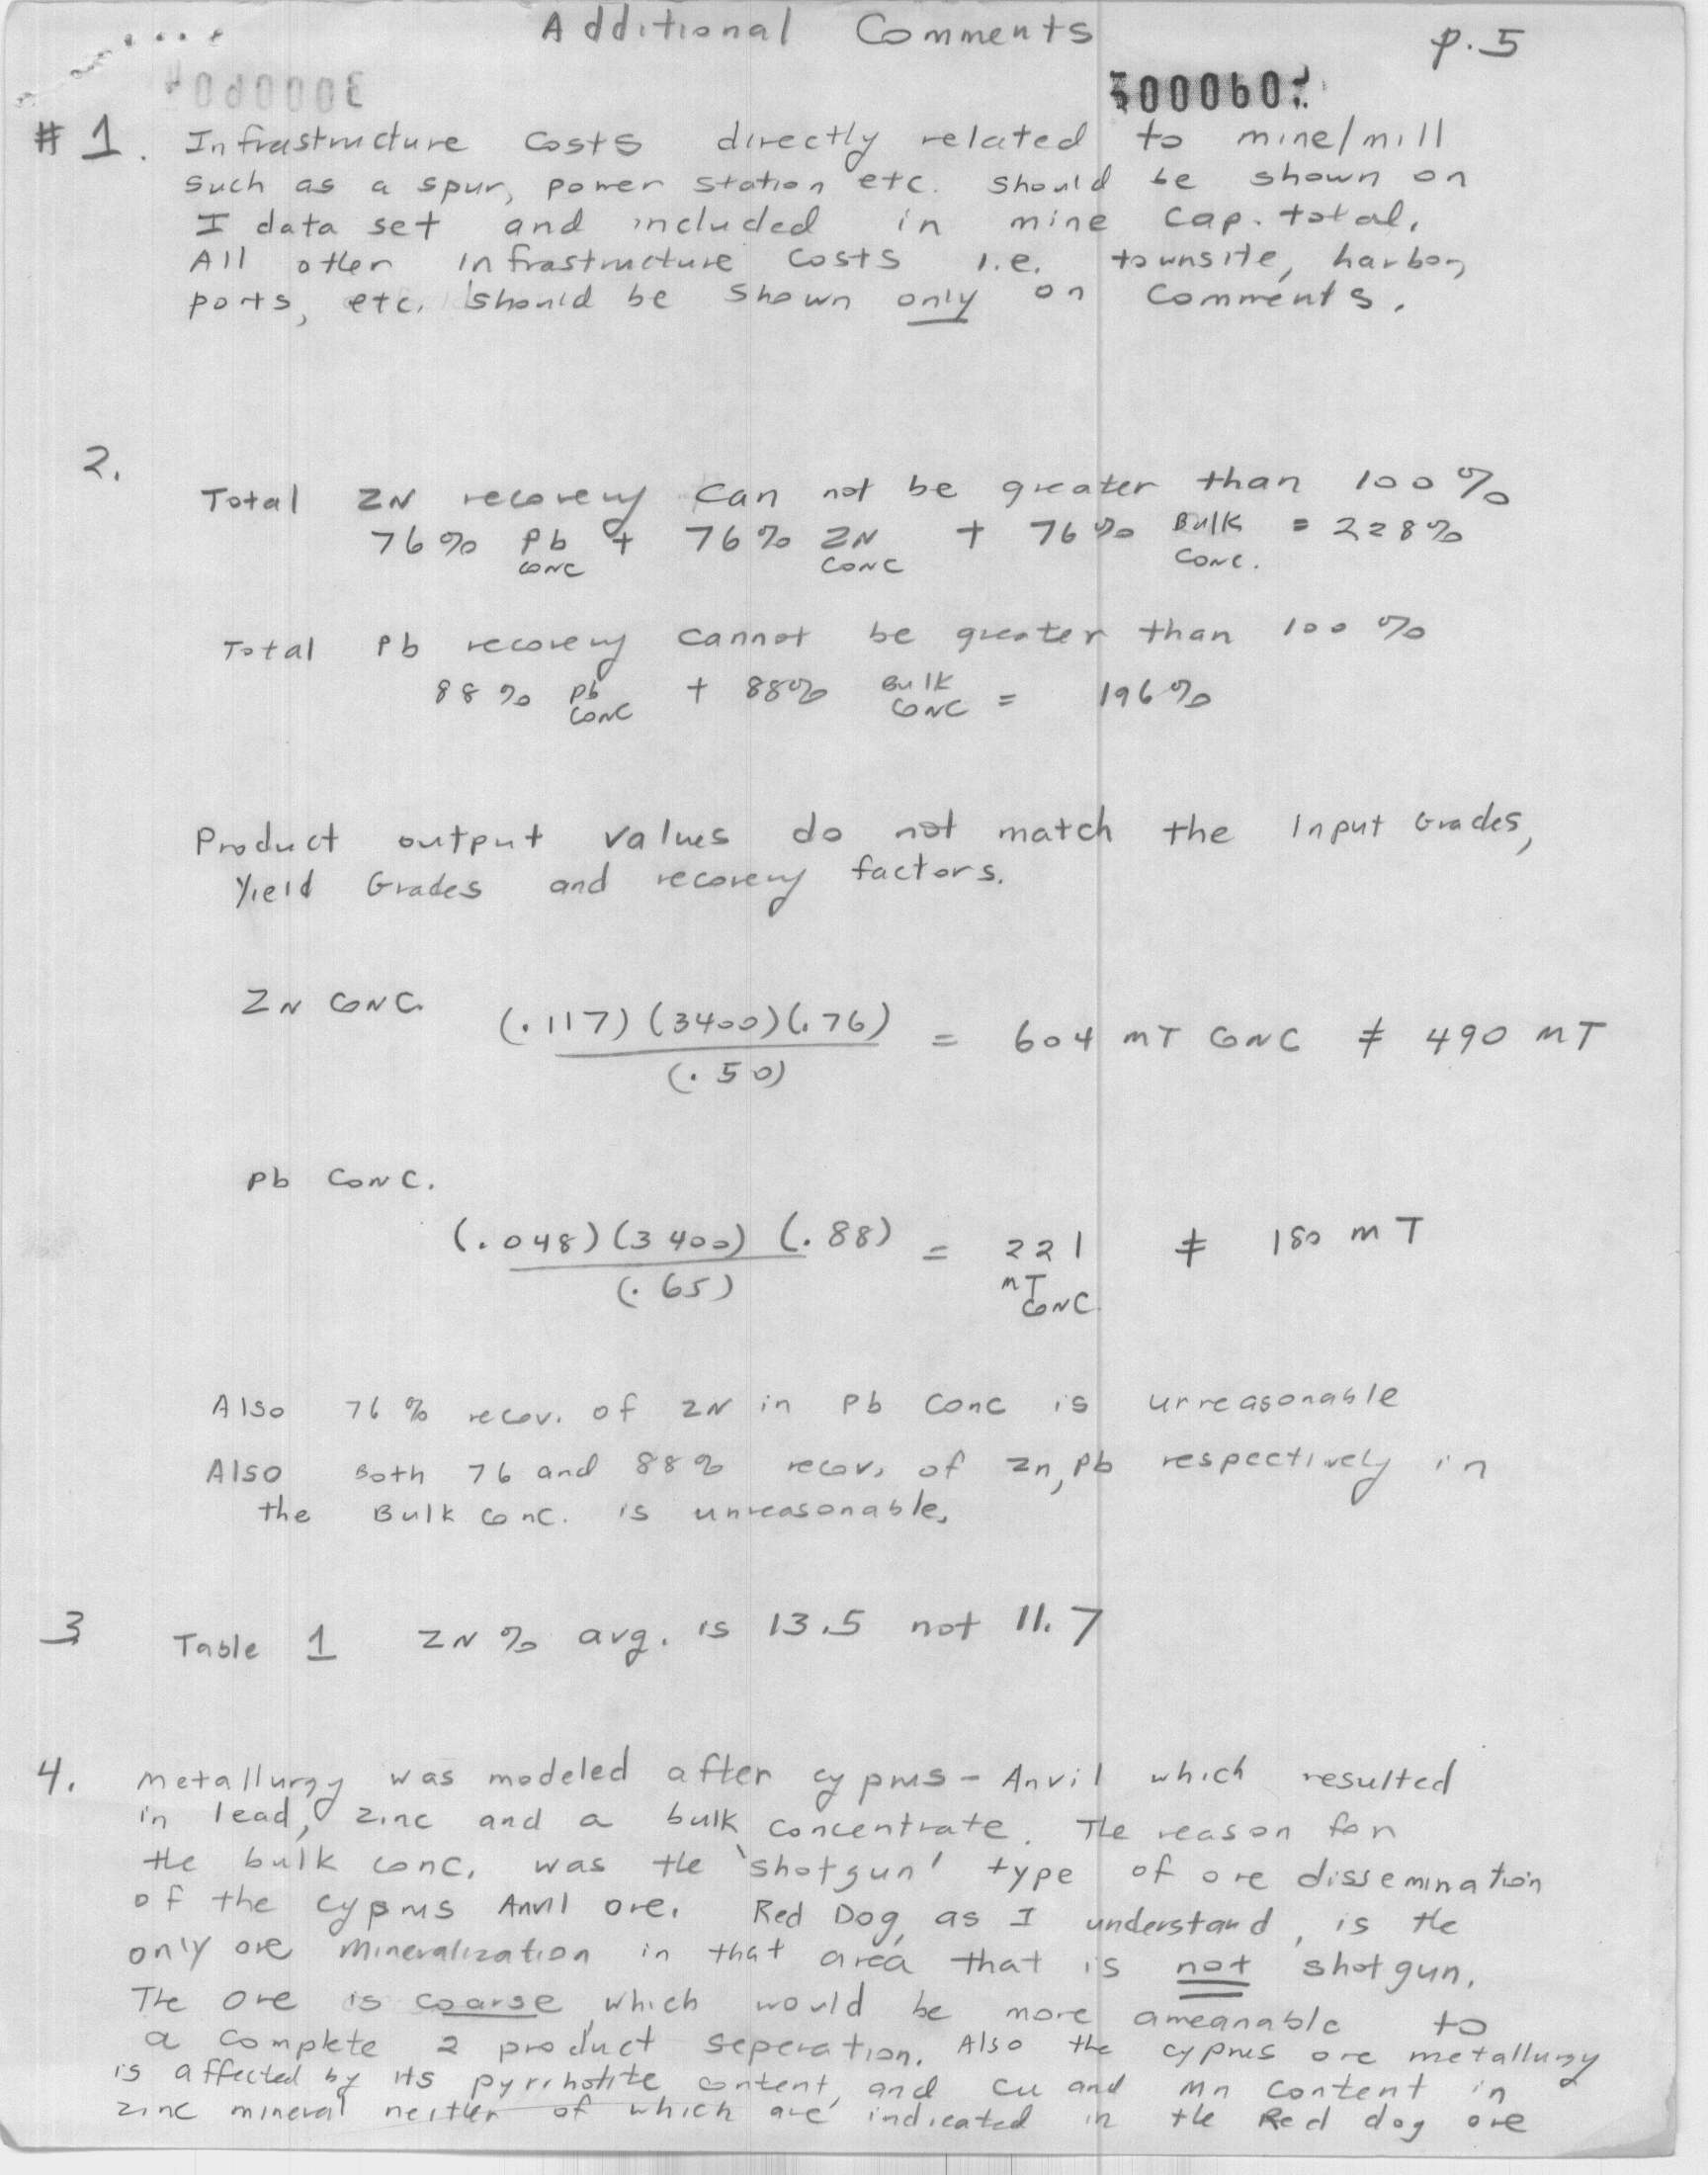 Additional Comments p.5
# 1. Infrastructure costs directly related to mine/mill
such as a spur, power station etc. should be shown on
I data set and included in mine cap. total.
All other infrastructure costs i.e. townsite, harbor,
ports, etc. should be shown only on comments.
2.
Total ZN recovery can not be greater than 100%
76% Pb + 76% ZN + 76% Bulk = 228%
conc conc conc.
Total Pb recovery cannot be greater than 100%
88% Pb + 88% Bulk = 196%
conc conc
Product output values do not match the Input Grades,
Yield Grades and recovery factors.
ZN CONC.
(.117)(3400)(.76) = 604 MT CONC ≠ 490 MT
(.50)
Pb CONC.
(.048)(3400)(.88) = 221 ≠ 180 MT
(.65) MT
CONC
Also 76% recov. of ZN in Pb conc is urreasonable
Also Both 76 and 88% recov. of Zn, Pb respectively in
the Bulk conc. is unreasonable.
3 Table 1 ZN % avg. is 13.5 not 11.7
4. Metallurgy was modeled after cyprus - Anvil which resulted
in lead, zinc and a bulk concentrate. The reason for
the bulk conc. was the 'shotgun' type of ore dissemination
of the cyprus Anvil ore. Red Dog, as I understand, is the
only ore mineralization in that area that is not shotgun.
The ore is coarse, which would be more ameanable to
a complete 2 product seperation. Also the cyprus ore metallurgy
is affected by its pyrrhotite content, and Cu and Mn content in
zinc mineral neither of which are indicated in the Red dog ore